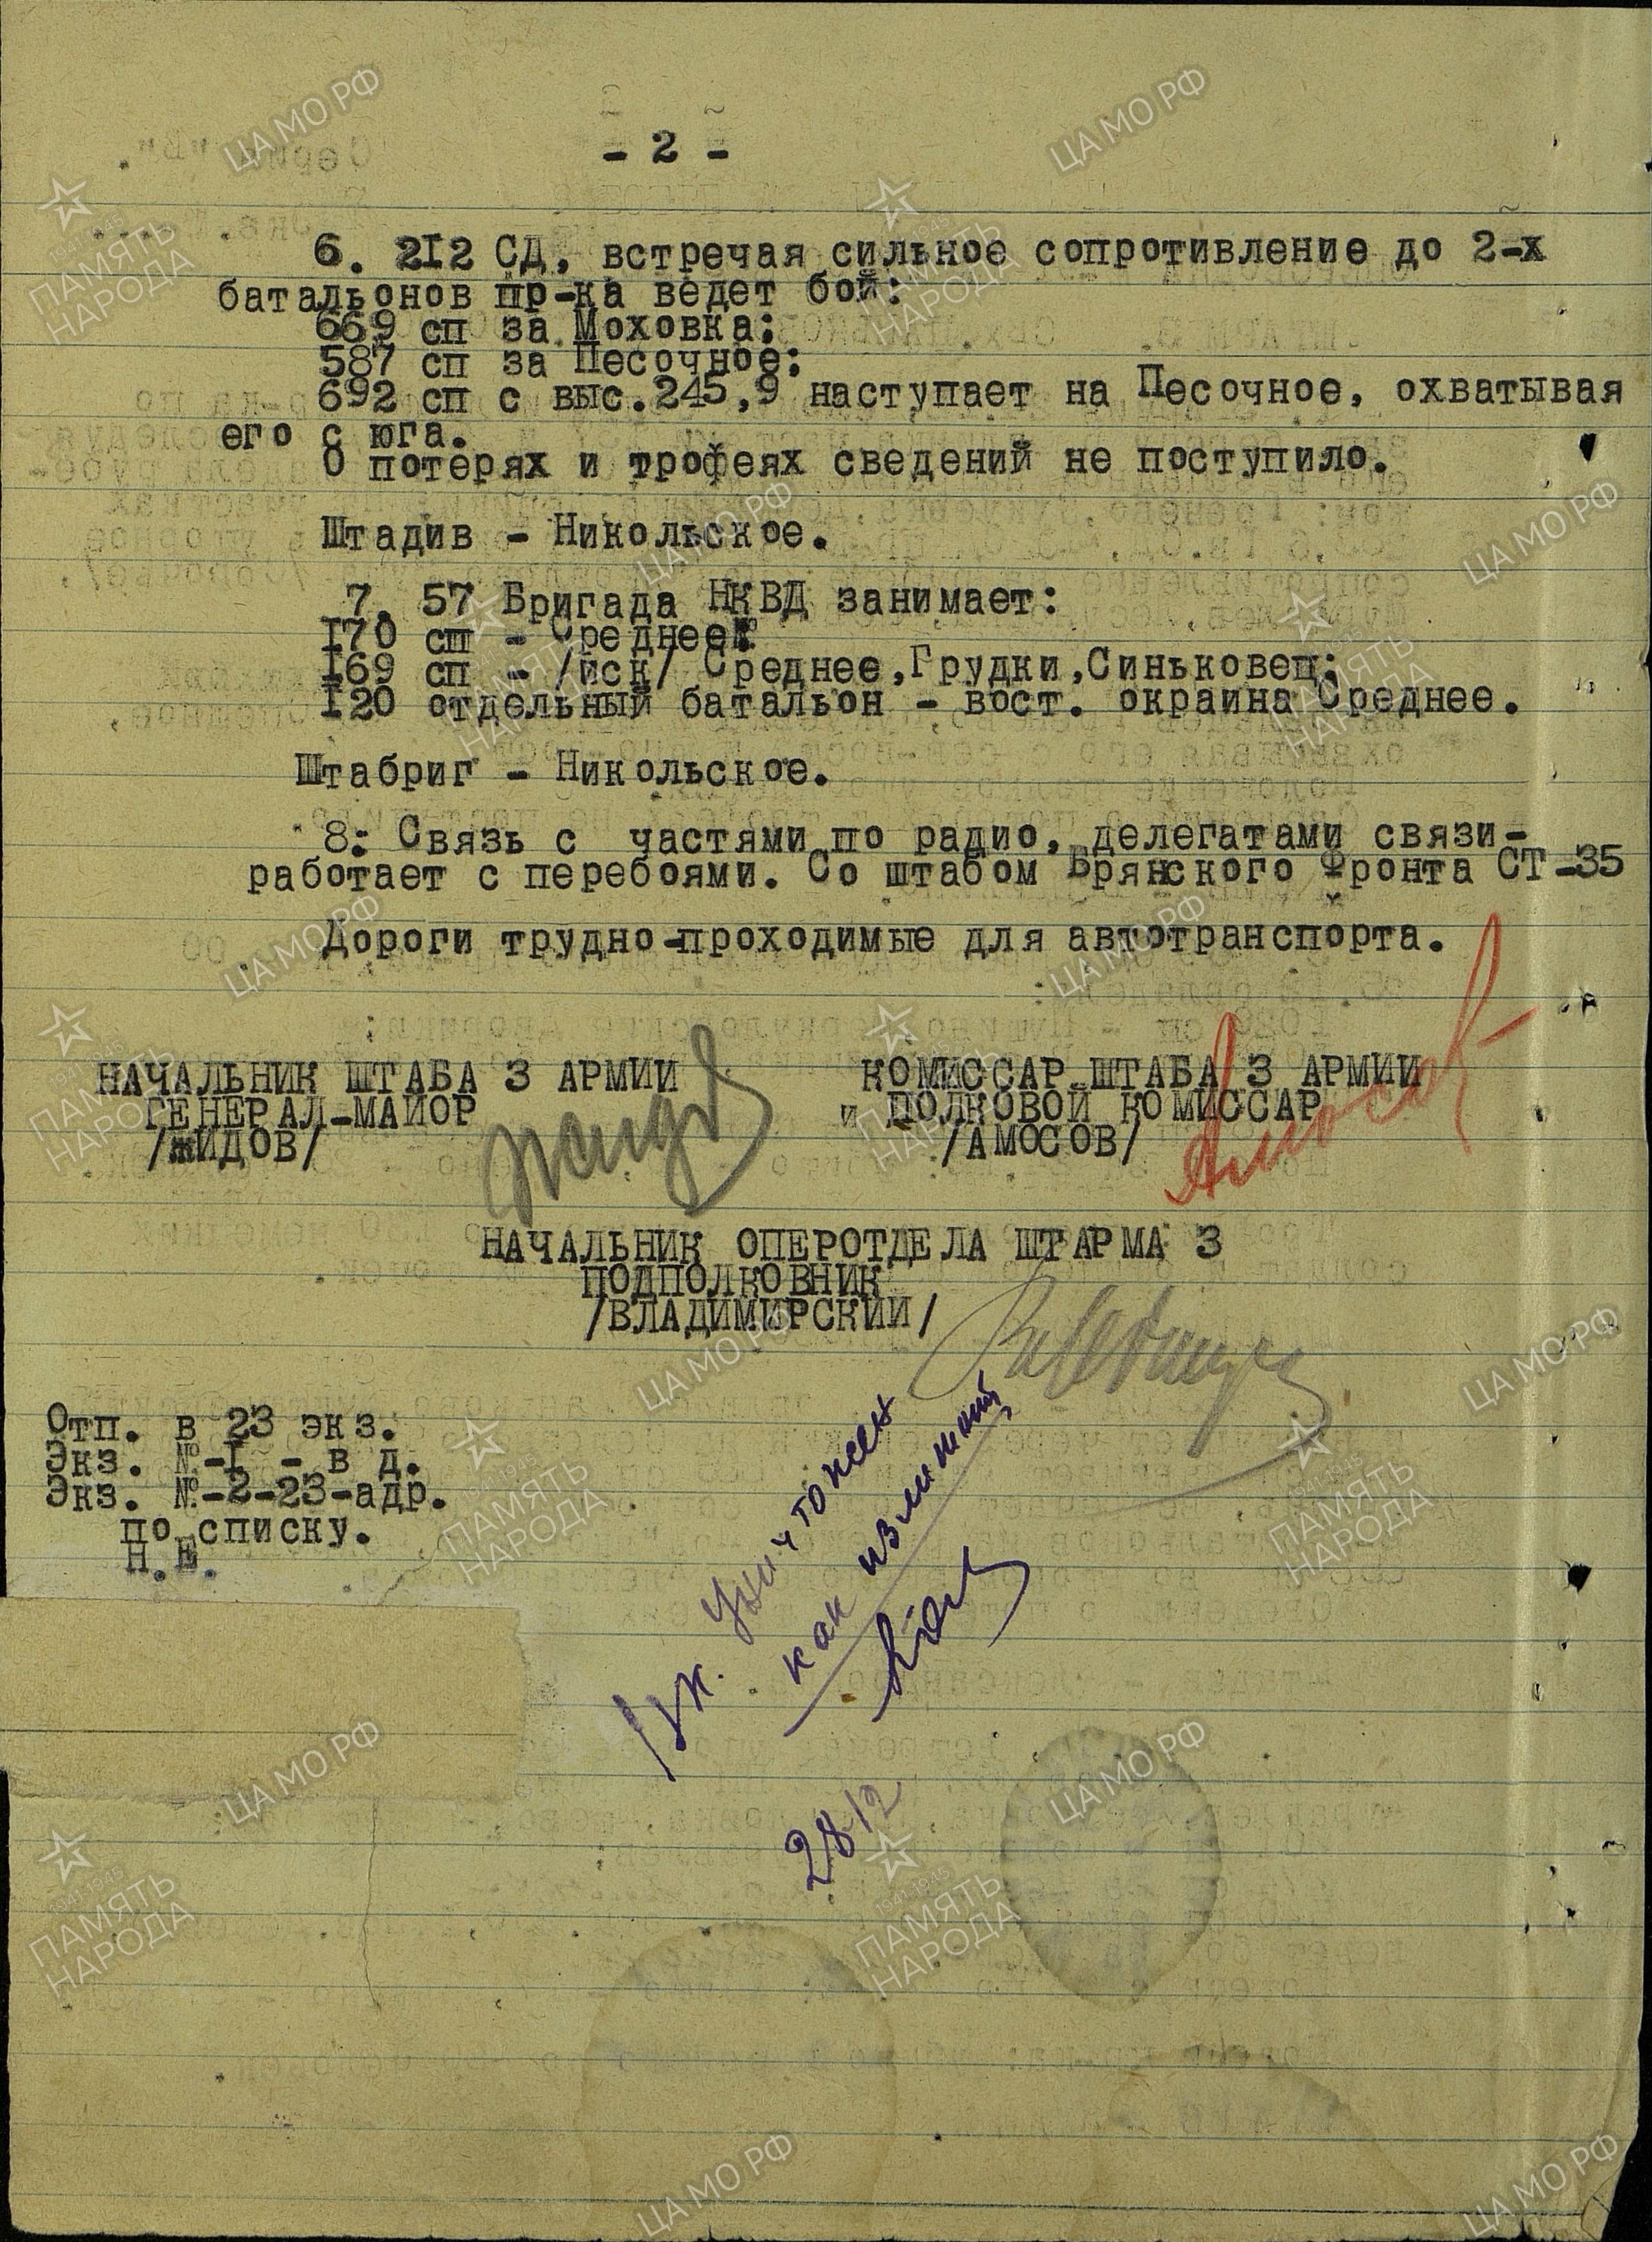 - 2 -
6. 2I2 СД, встречая сильное сопротивление до 2-х
батальонов пр-ка ведет бой:
669 сп за Моховка;
587 сп за Песочное;
692 сп с выс.245,9 наступает на Песочное, охватывая
его с юга.
О потерях и трофеях сведений не поступило.
Штадив - Никольское.
7. 57 Бригада НКВД занимает:
I70 сп - Среднее
I69 сп - /иск/ Среднее,Грудки,Синьковец;
I20 отдельный батальон - вост. окраина Среднее.
Штабриг - Никольское.
8: Связь с частями по радио, делегатами связи-
работает с перебоями. Со штабом Брянского Фронта СТ-35
Дороги трудно-проходимые для автотранспорта.
НАЧАЛЬНИК ШТАБА 3 АРМИИ
ГЕНЕРАЛ-МАЙОР
/ЖИДОВ/
КОМИССАР ШТАБА 3 АРМИИ
и ПОЛКОВОЙ КОМИССАР
/АМОСОВ/
Жидов
Амосов
НАЧАЛЬНИК ОПЕРОТДЕЛА ШТАРМА 3
ПОДПОЛКОВНИК
/ВЛАДИМИРСКИЙ/
Отп. в 23 экз.
Экз. №-I - в д.
Экз. №-2-23-адр.
по списку.
Н.Е.
уничтожен
как излишний
28/12
ЦАМО РФ
1941-1945
ПАМЯТЬ
НАРОДА